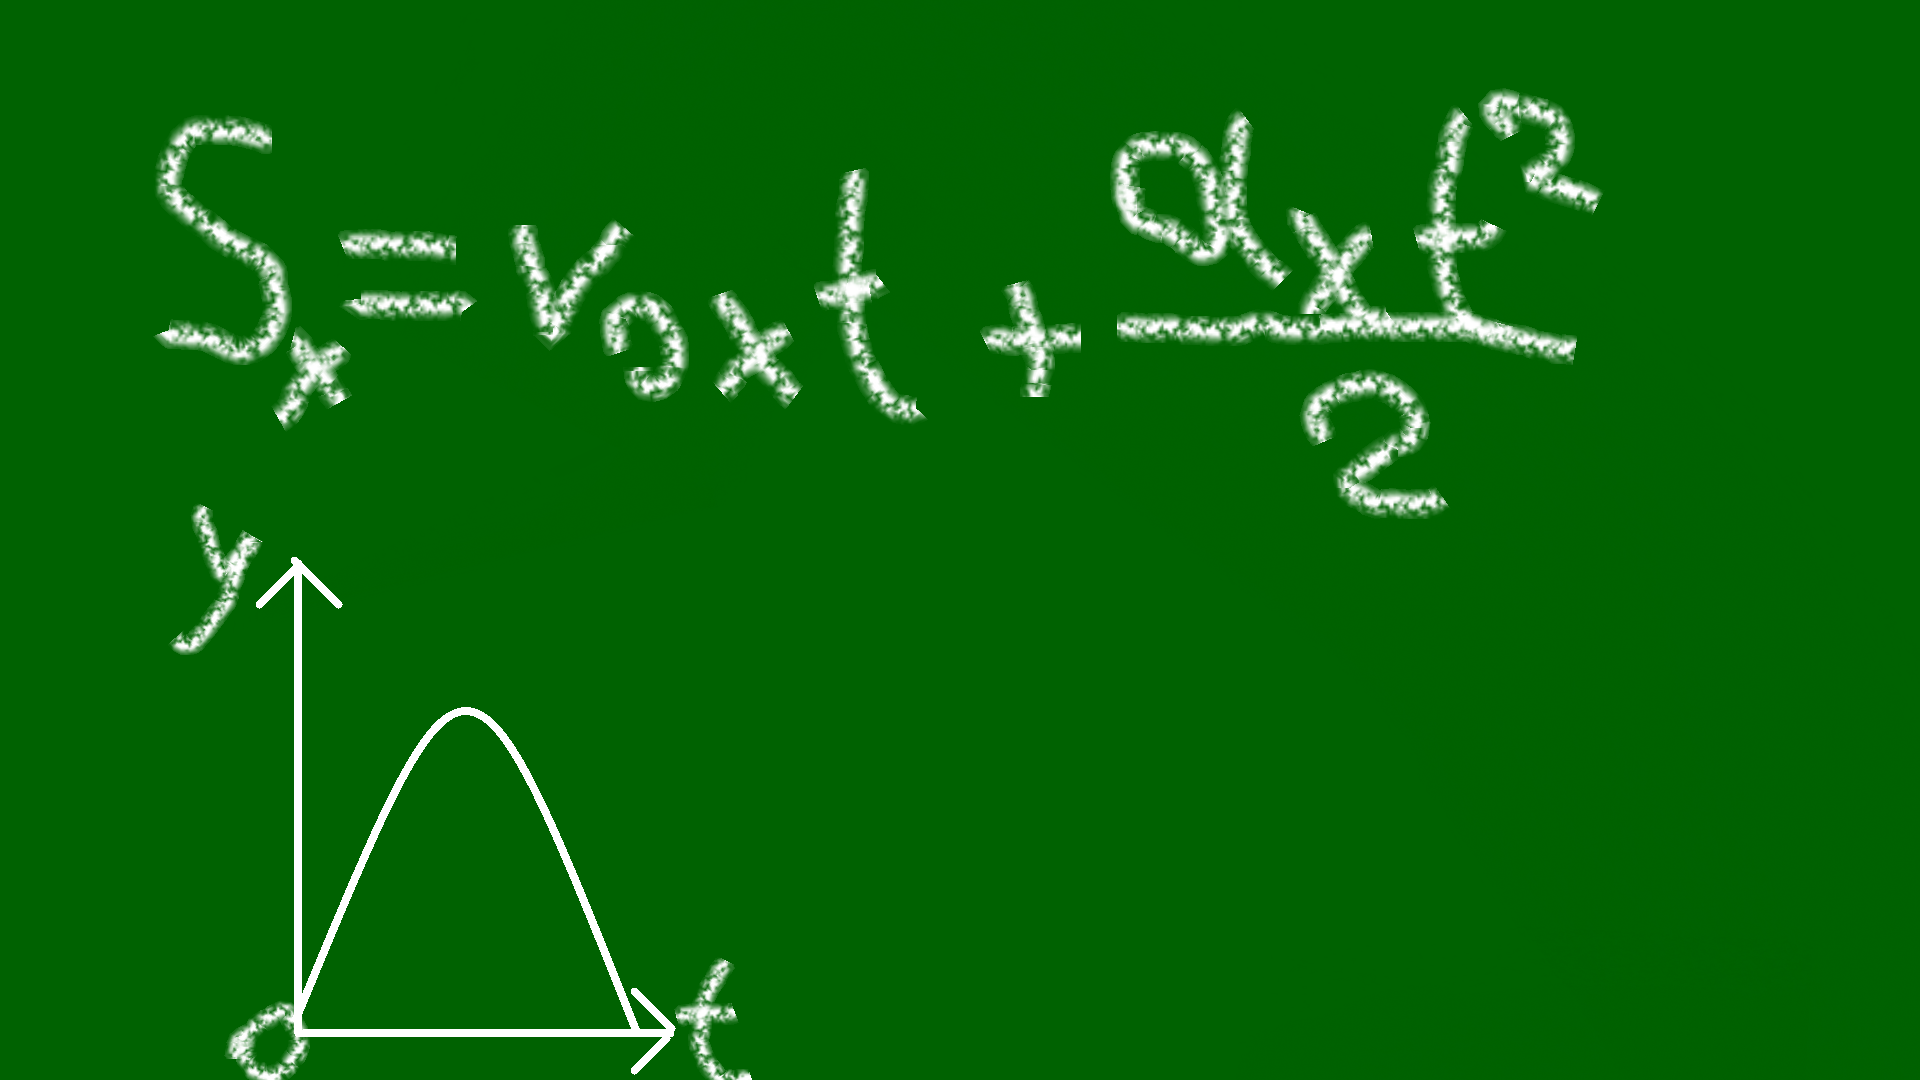 Sₓ = v₀ₓt + aₓt²/2
y
0
t